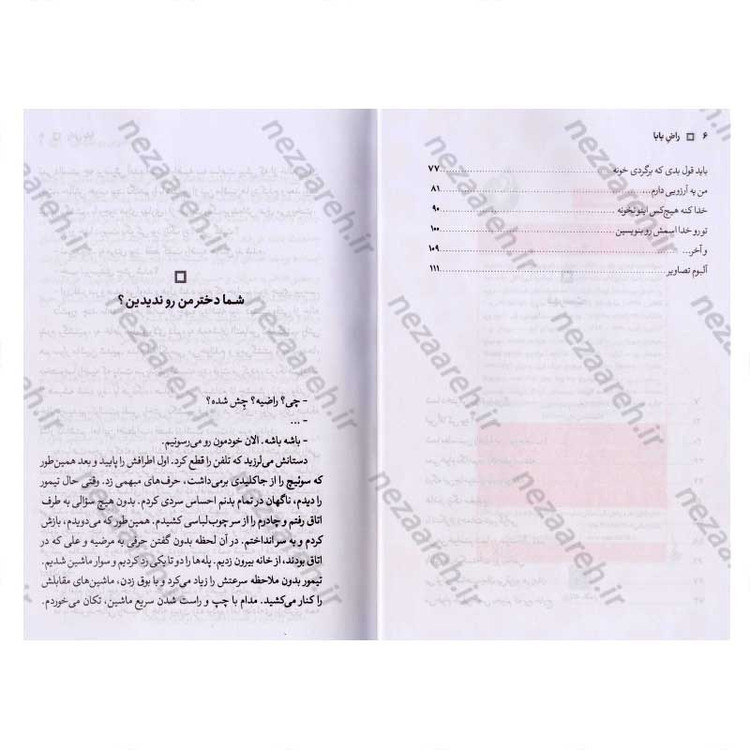 ۶ □ راضِ بابا
باید قول بدی که برگردی خونه ........ ۷۷
من یه آرزویی دارم... ........ ۸۱
خدا کنه هیچ‌کس اینو نخونه ........ ۹۰
تو رو خدا اسمش رو بنویسین ........ ۱۰۰
و آخر... ........ ۱۰۹
آلبوم تصاویر ........ ۱۱۱
شما دختر من رو ندیدین؟
- چی؟ راضیه؟ چِش شده؟
- ...
- باشه باشه. الان خودمون رو می‌رسونیم.
دستانش می‌لرزید که تلفن را قطع کرد. اول اطرافش را پایید و بعد همین‌طور
که سوئیچ را از جاکلیدی برمی‌داشت، حرف‌های مبهمی زد. وقتی حال تیمور
را دیدم، ناگهان در تمام بدنم احساس سردی کردم. بدون هیچ سؤالی به طرف
اتاق رفتم و چادرم را از سر چوب‌لباسی کشیدم. همین‌طور که می‌دویدم، بازش
کردم و به سر انداختم. در آن لحظه بدون گفتن حرفی به مرضیه و علی که در
اتاق بودند، از خانه بیرون زدیم. پله‌ها را دو تا یکی رد کردیم و سوار ماشین شدیم.
تیمور بدون ملاحظه سرعتش را زیاد می‌کرد و با بوق زدن، ماشین‌های مقابلش
را کنار می‌کشید. مدام با چپ و راست شدن سریع ماشین، تکان می‌خوردم.
nezaareh.ir